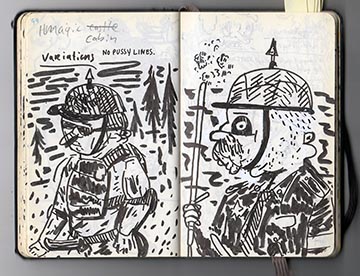 Magic castle
cabin
Variations NO PUSSY LINES.